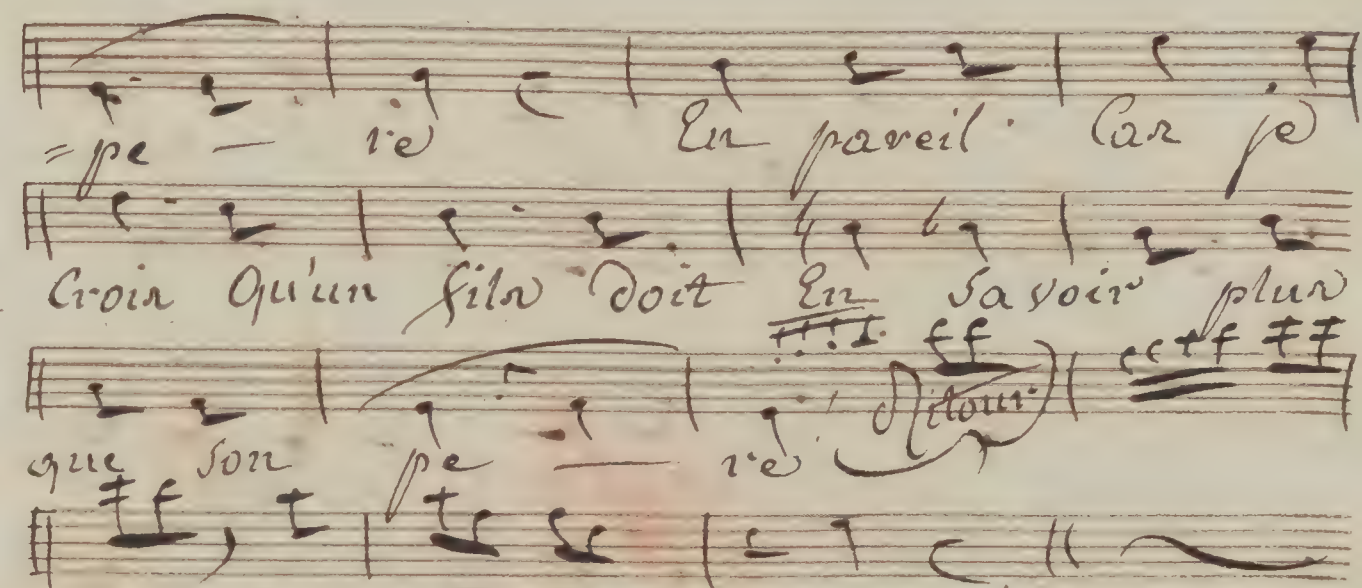 =pe — re En pareil Car je
Crois Qu'un fils doit En Savoir plus
que son pe — re Ritour